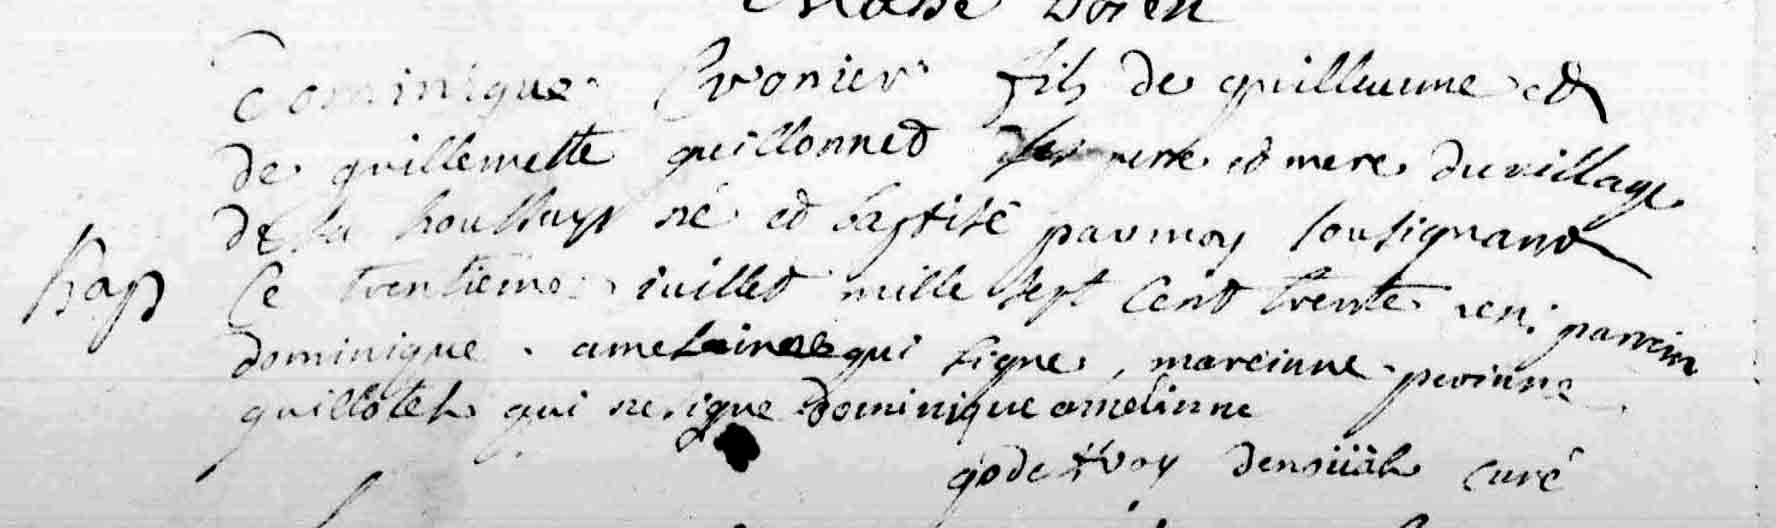 Dominique Evonier fils de guillaume et
de guillemette guillonnet ses perre et mere du village
de la houssaye né et baptisé par moy sousignant
bap Ce trentieme juillet mille sept Cent trente un; parrein
dominique amelinne qui signe, mareinne perinne
guillotel qui ne signe dominique amelinne
godefroy curé